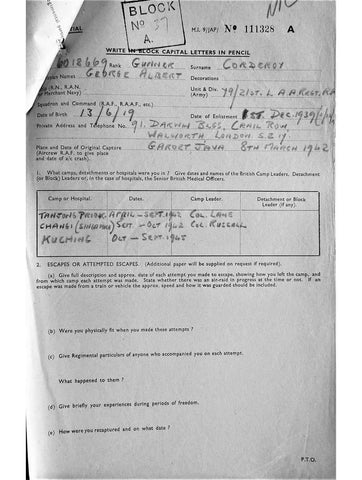 BLOCK
No 57
A.
M.I. 9/JAP/ No 111328 A
WRITE IN BLOCK CAPITAL LETTERS IN PENCIL
6012669 Rank GUNNER Surname CORDEROY
Names GEORGE ALBERT Decorations
(R.N., R.A.N. or Merchant Navy) Unit & Div. (Army) 79/21ST. L.A.A. REGT. RA
Squadron and Command (R.A.F., R.A.A.F., etc.)
Date of Birth 13/6/19 Date of Enlistment 1ST. DEC. 1939
Private Address and Telephone No. 91. DARWIN BLGS. CRAIL ROW.
WALWORTH LONDON S.E.17.
Place and Date of Original Capture GAROET JAVA 8TH MARCH 1942
(Aircrew R.A.F. to give place
and date of a/c crash).
1. What camps, detachments or hospitals were you in? Give dates and names of the British Camp Leaders, Detachment
(or Block) Leaders or, in the case of hospitals, the Senior British Medical Officers.
Camp or Hospital. Dates. Camp Leader. Detachment or Block Leader (if any).
TANJONG PRIOK APRIL - SEPT. 1942 COL. LANE
CHANGI (SINGAPORE) SEPT. - OCT 1942 COL RUSSELL
KUCHING OCT - SEPT. 1945
2. ESCAPES OR ATTEMPTED ESCAPES. (Additional paper will be supplied on request if required).
(a) Give full description and approx. date of each attempt you made to escape, showing how you left the camp, and
from which camp each attempt was made. State whether there was an air-raid in progress at the time or not. If an
escape was made from a train or vehicle the approx. speed and how it was guarded should be included.
(b) Were you physically fit when you made these attempts?
(c) Give Regimental particulars of anyone who accompanied you on each attempt.
What happened to them?
(d) Give briefly your experiences during periods of freedom.
(e) How were you recaptured and on what date?
P.T.O.